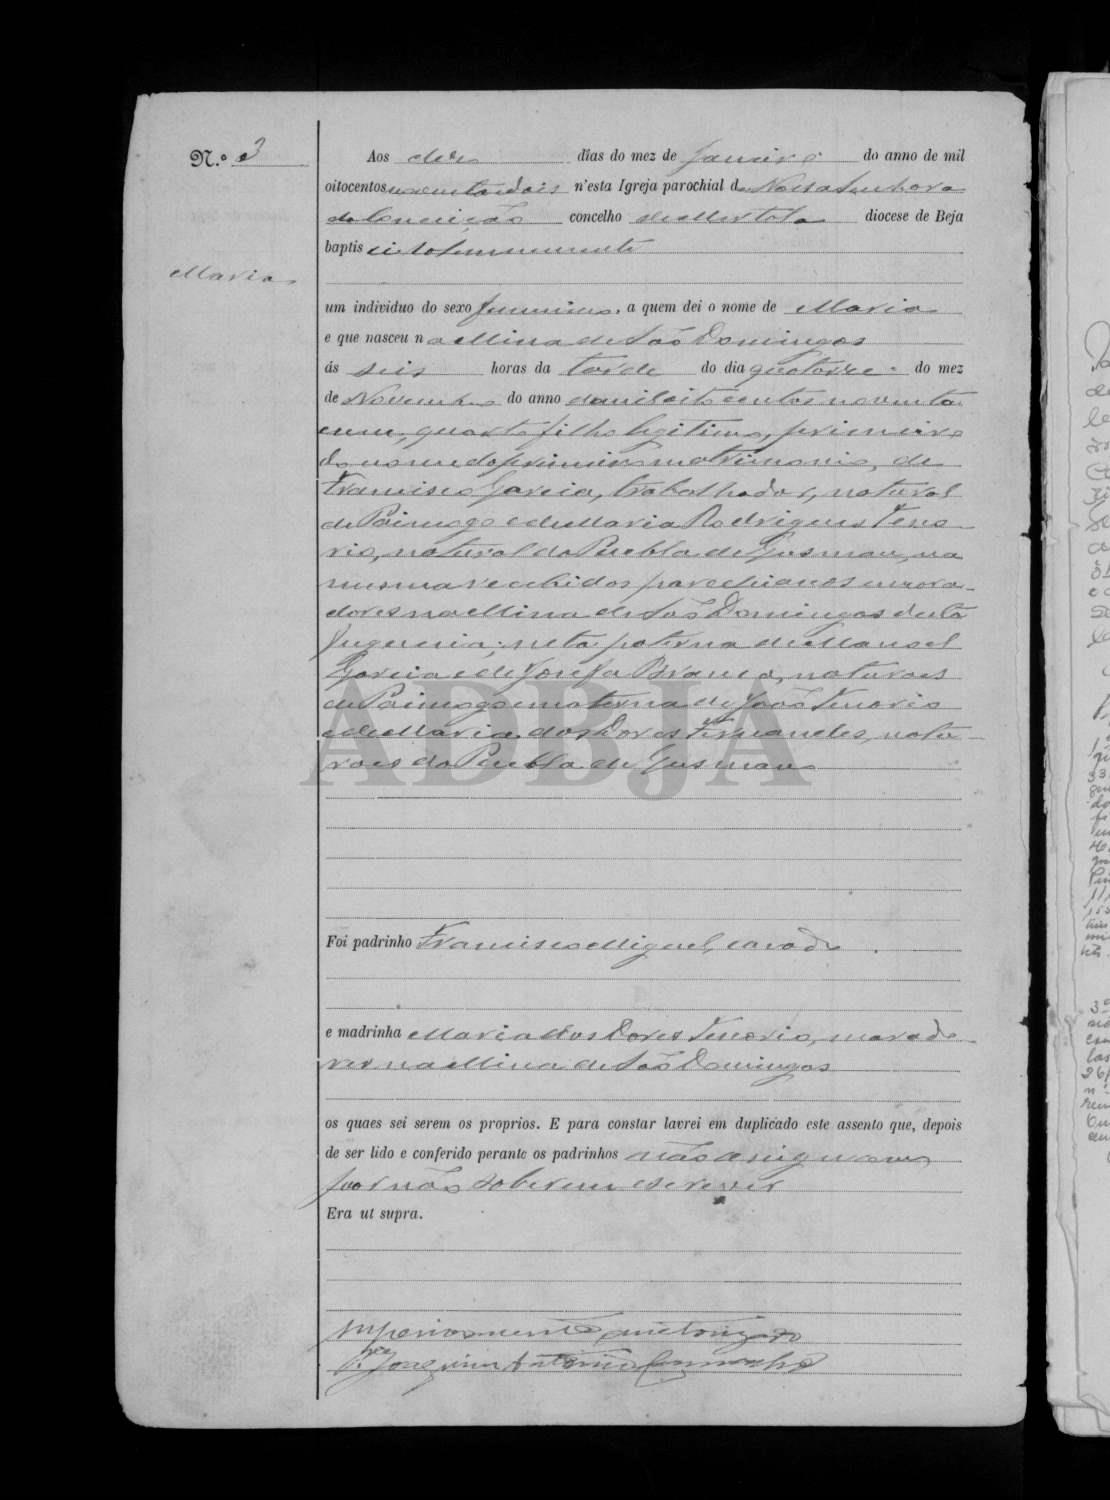 N.º 3
Maria
Aos dez dias do mez de Janeiro do anno de mil
oitocentos noventa e dois n'esta Igreja parochial de Nossa Senhora
da Conceição concelho de Mertola diocese de Beja
baptisei solemnemente
um individuo do sexo feminino, a quem dei o nome de Maria
e que nasceu na Mina de São Domingos
ás seis horas da tarde do dia quatorze do mez
de Novembro do anno de mil oito centos noventa
e um, quarto filho legitimo, primeiro
do nome do primeiro matrimonio, de
Francisco Garcia, trabalhador, natural
de Paimogo e de Maria Rodrigues Teno-
rio, natural da Puebla de Gusman, na
mesma recebidos parochianos e mora-
dores na Mina de São Domingos desta
freguesia; neta paterna de Manoel
Garcia e de Josefa Branco, naturaes
de Paimogo e materna de João Tenorio
e de Maria das Dores Fernandes, natu-
raes da Puebla de Gusman
ADBJA
Foi padrinho Francisco Miguel, casado
e madrinha Maria das Dores Tenorio, morado-
res na Mina de São Domingos
os quaes sei serem os proprios. E para constar lavrei em duplicado este assento que, depois
de ser lido e conferido perante os padrinhos não assignaram
por não saberem escrever
Era ut supra.
Superiormente auctorizado
P.e Joaquim Antonio